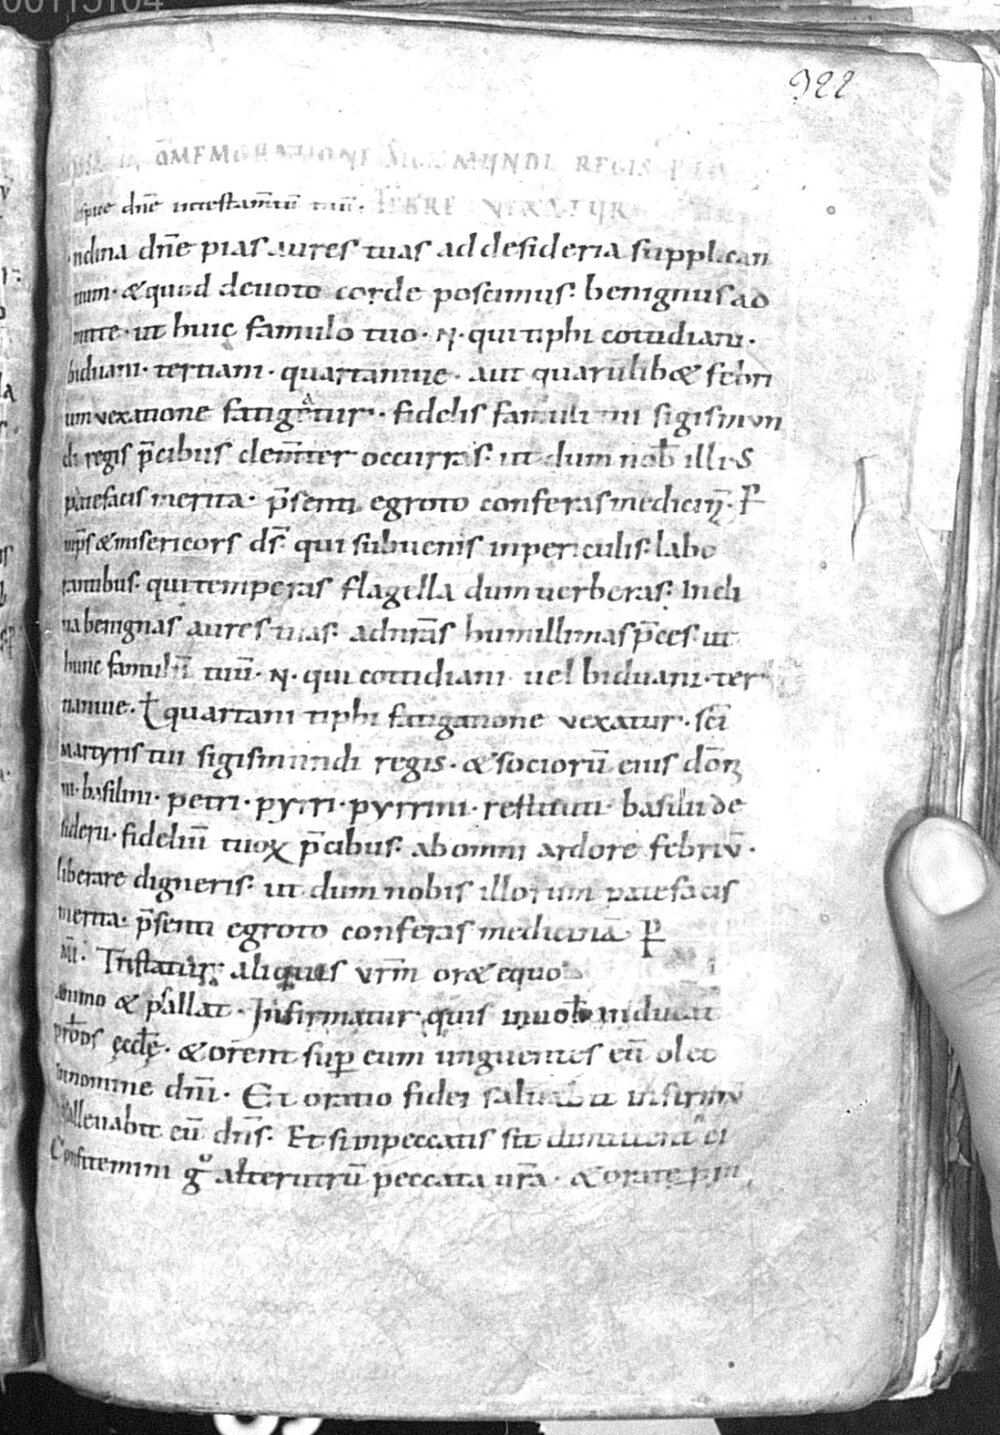 00115104
922
IN CŌMEMORATIONE SIGISMUNDI REGIS PRO
spice dn̄e intestam̄tū tuū. FEBRE VEXATUR
ndina dn̄e pias aures tuas ad desideria supplican
tium · & quod deuoto corde poscimus · benignus ad
mitte · ut huic famulo tuo · N · qui tiphi cottidiani ·
biduani · tertiani · quartaniue · aut quarūlib& febri
um uexatione fatigatur · fidelis famuli tui sigismun
di regis p̄cibus clem̄ter occurras · ut dum nob̄ illi S
patefacis merita · p̄senti egroto conferas medicinā · P̄
mp̄s & misericors ds̄ qui subuenis in periculis labo
rantibus · qui temperas flagella dum uerberas · Incli
na benignas aures tuas · ad nr̄as humillimas p̄ces ut
hunc famulū tuū · N · qui cottidiani uel biduani · ter
tianiue · ł quartani tiphi fatigatione uexatur · sc̄i
martyris tui sigismundi regis · & sociorū eius don̄
ni · basilini · petri · pyrri · pyrrini · restituti · basilii de
siderii · fideliū tuoꝝ p̄cibus · ab omni ardore febriū ·
liberare digneris · ut dum nobis illorum patefacis
merita · p̄senti egroto conferas medicinā P̄
Tristatur aliquis ur̄m or& equo
animo & psallat · Infirmatur quis in uob̄ inducat
prb̄os eccl̄ę · & orent sup eum unguentes eū oleo
in nomine dn̄i · Et oratio fidei saluabit infirmū
& alleuabit eū dn̄s · Et si in peccatis sit dimittent ei
Confitemini g° alterutrū peccata ur̄a · & orate